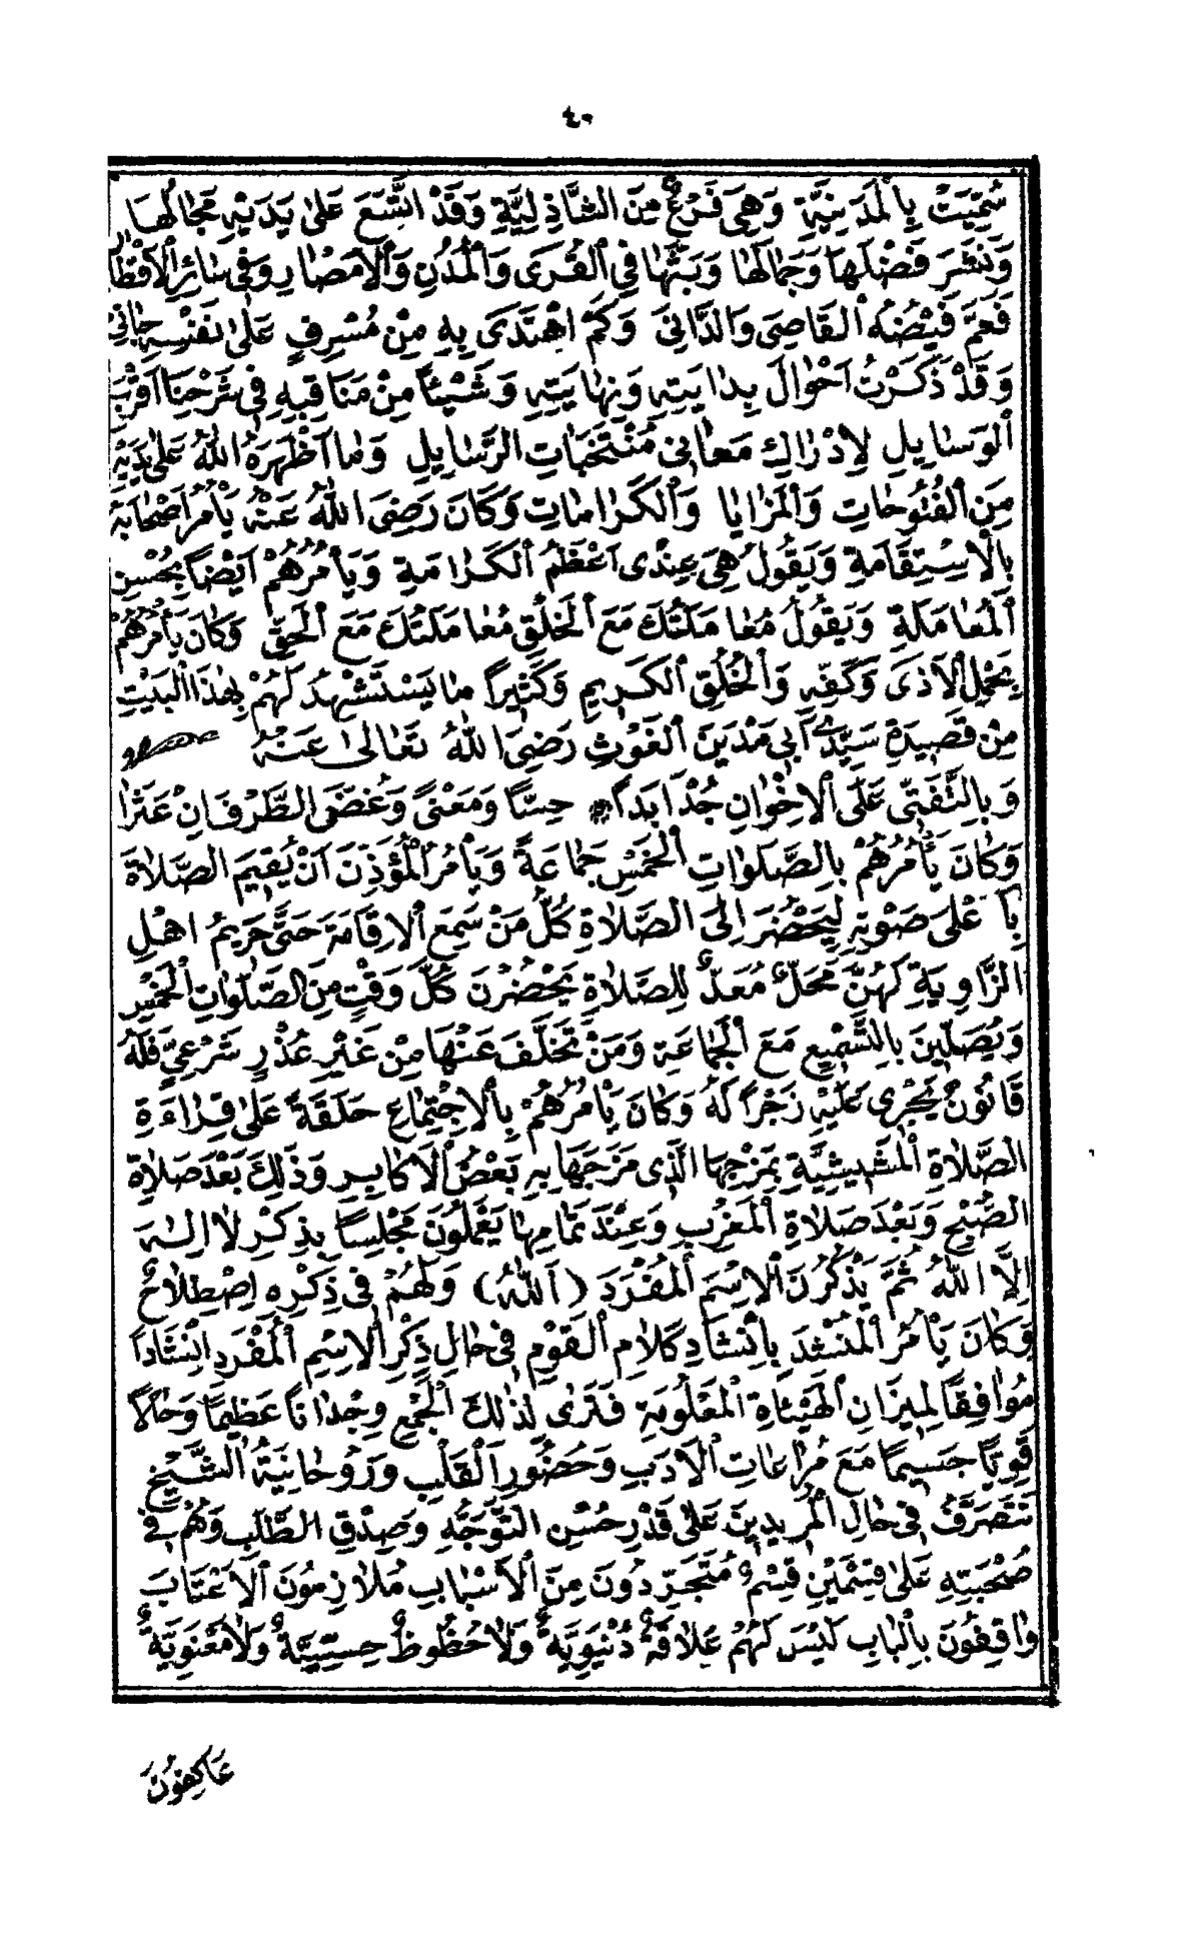 ٤٠
سُمِّيَتْ بِالْمَدَنِيَّةِ وَهِيَ فَرْعٌ مِنَ الشَّاذِلِيَّةِ وَقَدْ اتَّسَعَ عَلىٰ يَدَيْهِ مَجَالُهَا
وَنَشَرَ فَضْلَهَا وَجَمَالَهَا وَبَثَّهَا فِي الْقُرَى وَالْمُدُنِ وَالْأَمْصَارِ وَفِي سَائِرِ الْأَقْطَارِ
فَعَمَّ فَيْضُهُ الْقَاصِيَ وَالدَّانِيَ وَكَمْ اهْتَدَى بِهِ مِنْ مُسْرِفٍ عَلىٰ نَفْسِهِ جَانِي
وَقَدْ ذَكَرْتُ اَحْوَالَ بِدَايَتِهِ وَنِهَايَتِهِ وَشَيْئًا مِنْ مَنَاقِبِهِ فِي شَرْحِنَا اَقْرَبُ
الْوَسَايِلِ لِاِدْرَاكِ مَعَانِي مُنْتَخَبَاتِ الرَّسَايِلِ وَمَا اَظْهَرَهُ اللهُ عَلىٰ يَدَيْهِ
مِنَ الْفُتُوحَاتِ وَالْمَزَايَا وَالْكَرَامَاتِ وَكَانَ رَضِيَ اللهُ عَنْهُ يَأْمُرُ اَصْحَابَهُ
بِالْاِسْتِقَامَةِ وَيَقُولُ هِيَ عِنْدِى اَعْظَمُ الْكَرَامَةِ وَيَأْمُرُهُمْ اَيْضًا بِحُسْنِ
الْمُعَامَلَةِ وَيَقُولُ مُعَامَلَتُكَ مَعَ الْخَلْقِ مُعَامَلَتُكَ مَعَ الْحَقِّ وَكَانَ يَأْمُرُهُمْ
بِحَمْلِ الْاَذَى وَكَفِّهِ وَالْخُلُقِ الْكَرِيمِ وَكَثِيرًا مَا يَسْتَشْهِدُ لَهُمْ بِهٰذَا الْبَيْتِ
مِنْ قَصِيدَةِ سَيِّدِي اَبِي مَدْيَنَ الْغَوْثِ رَضِيَ اللهُ تَعَالىٰ عَنْهُ
وَبِالتَّفَتِّي عَلَى الْاِخْوَانِ جُدْ اَبَدًا حِسًّا وَمَعْنىً وَغُضَّ الطَّرْفَ اِنْ عَثَرَا
وَكَانَ يَأْمُرُهُمْ بِالصَّلَوَاتِ الْخَمْسِ جَمَاعَةً وَيَأْمُرُ الْمُؤَذِّنَ اَنْ يُقِيمَ الصَّلَاةَ
بِاَعْلىَ صَوْتِهِ لِيَحْضُرَ اِلىَ الصَّلَاةِ كُلُّ مَنْ سَمِعَ الْاِقَامَةَ حَتَّى حَرِيمُ اهْلِ
الزَّاوِيَةِ لَهُنَّ مَحَلٌّ مُعَدٌّ لِلصَّلَاةِ يَحْضُرْنَ كُلَّ وَقْتٍ مِنَ الصَّلَوَاتِ الْخَمْسِ
وَيُصَلِّينَ بِالتَّسْمِيعِ مَعَ الْجَمَاعَةِ وَمَنْ تَخَلَّفَ عَنْهَا مِنْ غَيْرِ عُذْرٍ شَرْعِيٍّ فَلَهُ
قَانُونٌ يَجْرِى عَلَيْهِ زَجْرًا لَهُ وَكَانَ يَأْمُرُهُمْ بِالْاِجْتِمَاعِ حَلَقَةً عَلىٰ قِرَاءَةِ
الصَّلَاةِ الْمَشِيشِيَّةِ بِمَزْجِهَا الَّذِى مَزَجَهَا بِهِ بَعْضُ الْاَكَابِرِ وَذٰلِكَ بَعْدَ صَلَاةِ
الصُّبْحِ وَبَعْدَ صَلَاةِ الْمَغْرِبِ وَعِنْدَ تَمَامِهَا يَعْمَلُونَ مَجْلِسًا بِذِكْرِ لَا اِلٰهَ
اِلَّا اللهُ ثُمَّ يَذْكُرُنَ الْاِسْمَ الْمُفْرَدَ (اَللهُ) وَلَهُمْ فِي ذِكْرِهِ اِصْطِلَاحٌ
وَكَانَ يَأْمُرُ الْمُنْشِدَ بِاِنْشَادِ كَلَامِ الْقَوْمِ فِي حَالِ ذِكْرِ الْاِسْمِ الْمُفْرَدِ اِنْشَادًا
مُوَافِقًا لِمِيزَانِ الْهَيْئَاةِ الْمَعْلُومَةِ فَتَرىٰ لِذٰلِكَ الْجَمْعِ وِجْدَانًا عَظِيمًا وَحَالًا
قَوِيًّا جَسِيمًا مَعَ مُرَاعَاتِ الْاَدَبِ وَحُضُورِ الْقَلْبِ وَرَوُحَانِيَّةُ الشَّيْخِ
تَتَصَرَّفُ فِي حَالِ الْمُرِيدِينَ عَلىٰ قَدْرِ حُسْنِ التَّوَجُّهِ وَصِدْقِ الطَّلَبِ وَهُمْ فِي
صُحْبَتِهِ عَلىٰ قِسْمَيْنِ قِسْمٌ مُتَجَرِّدُونَ مِنَ الْاَسْبَابِ مُلَازِمُونَ الْاَعْتَابَ
وَاقِفُونَ بِالْبَابِ لَيْسَ لَهُمْ عَلَاقَةٌ دُنْيَوِيَّةٌ وَلَا حُظُوظٌ حِسِّيَّةٌ وَلَا مَعْنَوِيَّةٌ
عَاكِفُونَ